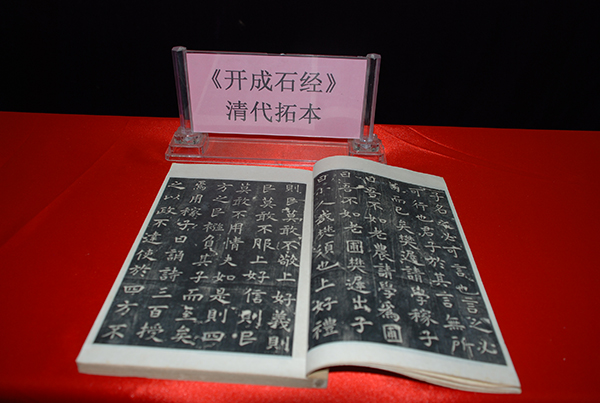 《开成石经》
清代拓本
子名之必可言也言之必
可行也君子於其言無所
苟而已矣樊遲請學稼子
曰吾不如老農請學為圃
曰吾不如老圃樊遲出子
曰小人哉樊須也上好禮
則民莫敢不敬上好義則
民莫敢不服上好信則民
莫敢不用情夫如是則四
方之民襁負其子而至矣
焉用稼子曰誦詩三百授
之以政不達使於四方不